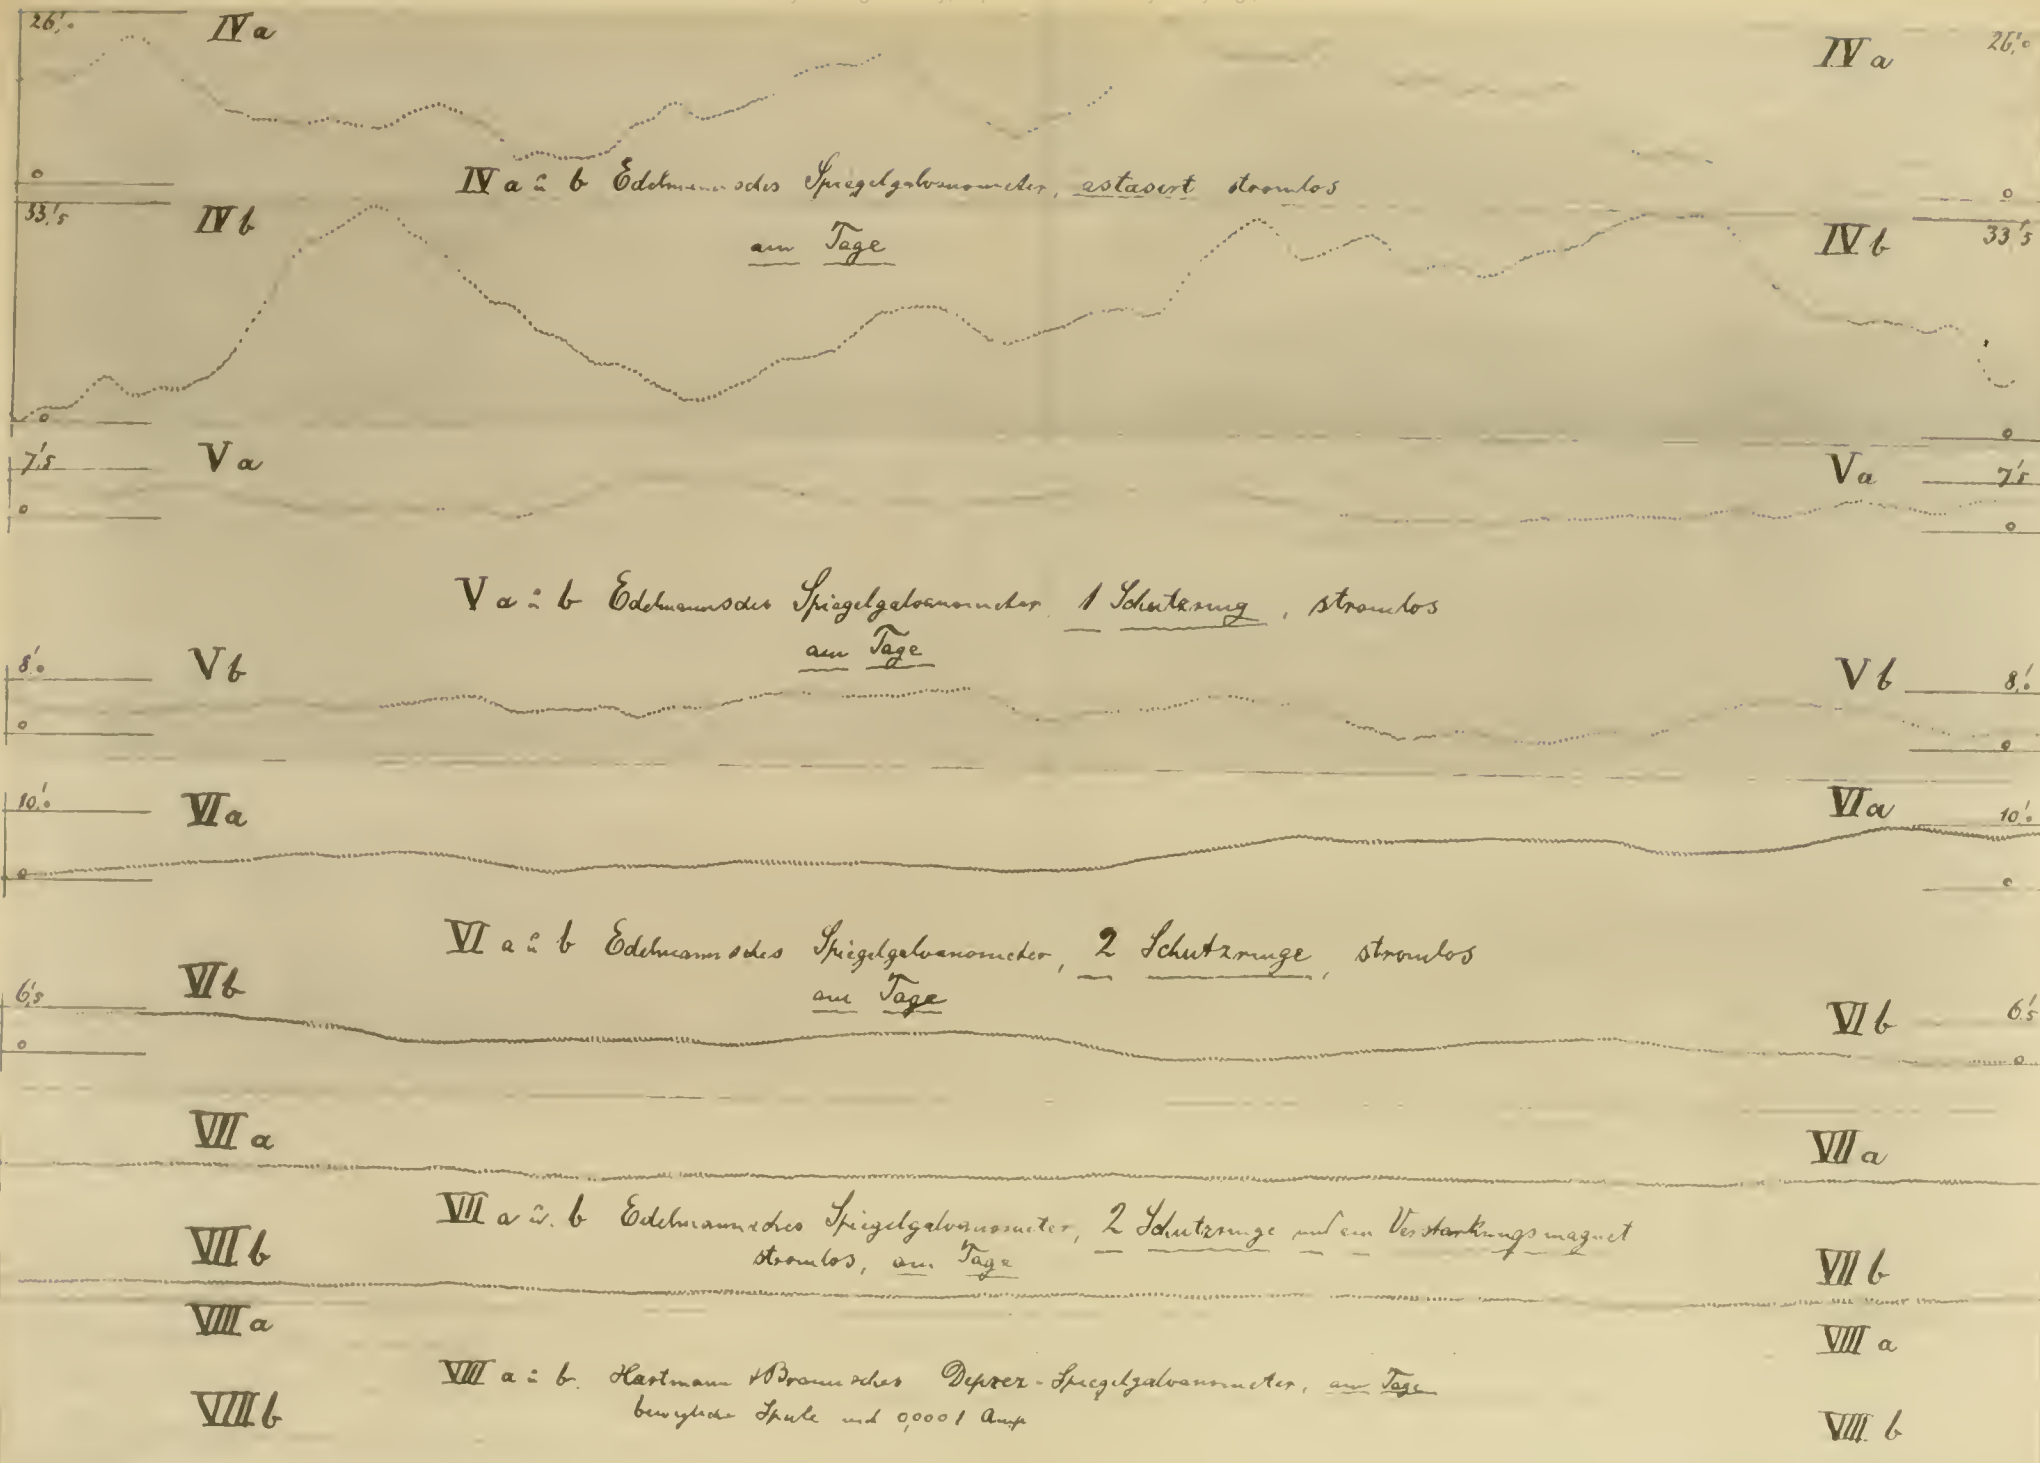 26',0 IVa IVa 26',0
0 IV a u b Edelmannsches Spiegelgalvanometer, astasiert stromlos 0
33',5 IVb am Tage IVb 33',5
0 0
7',5 Va Va 7',5
0 0
V a u b Edelmannsches Spiegelgalvanometer 1 Schutzring, stromlos
am Tage
8',0 Vb Vb 8',0
0 0
10',0 VIa VIa 10',0
0 0
VI a u b Edelmannsches Spiegelgalvanometer, 2 Schutzringe, stromlos
am Tage
6',5 VIb VIb 6',5
0 0
VII a VII a
VII a u. b Edelmannsches Spiegelgalvanometer, 2 Schutzringe und ein Verstärkungsmagnet
stromlos, am Tage
VII b VII b
VIII a VIII a
VIII a u b. Hartmann & Braunsches Deprez-Spiegelgalvanometer, am Tage
bewegliche Spule mit 0,0001 Amp
VIII b VIII. b